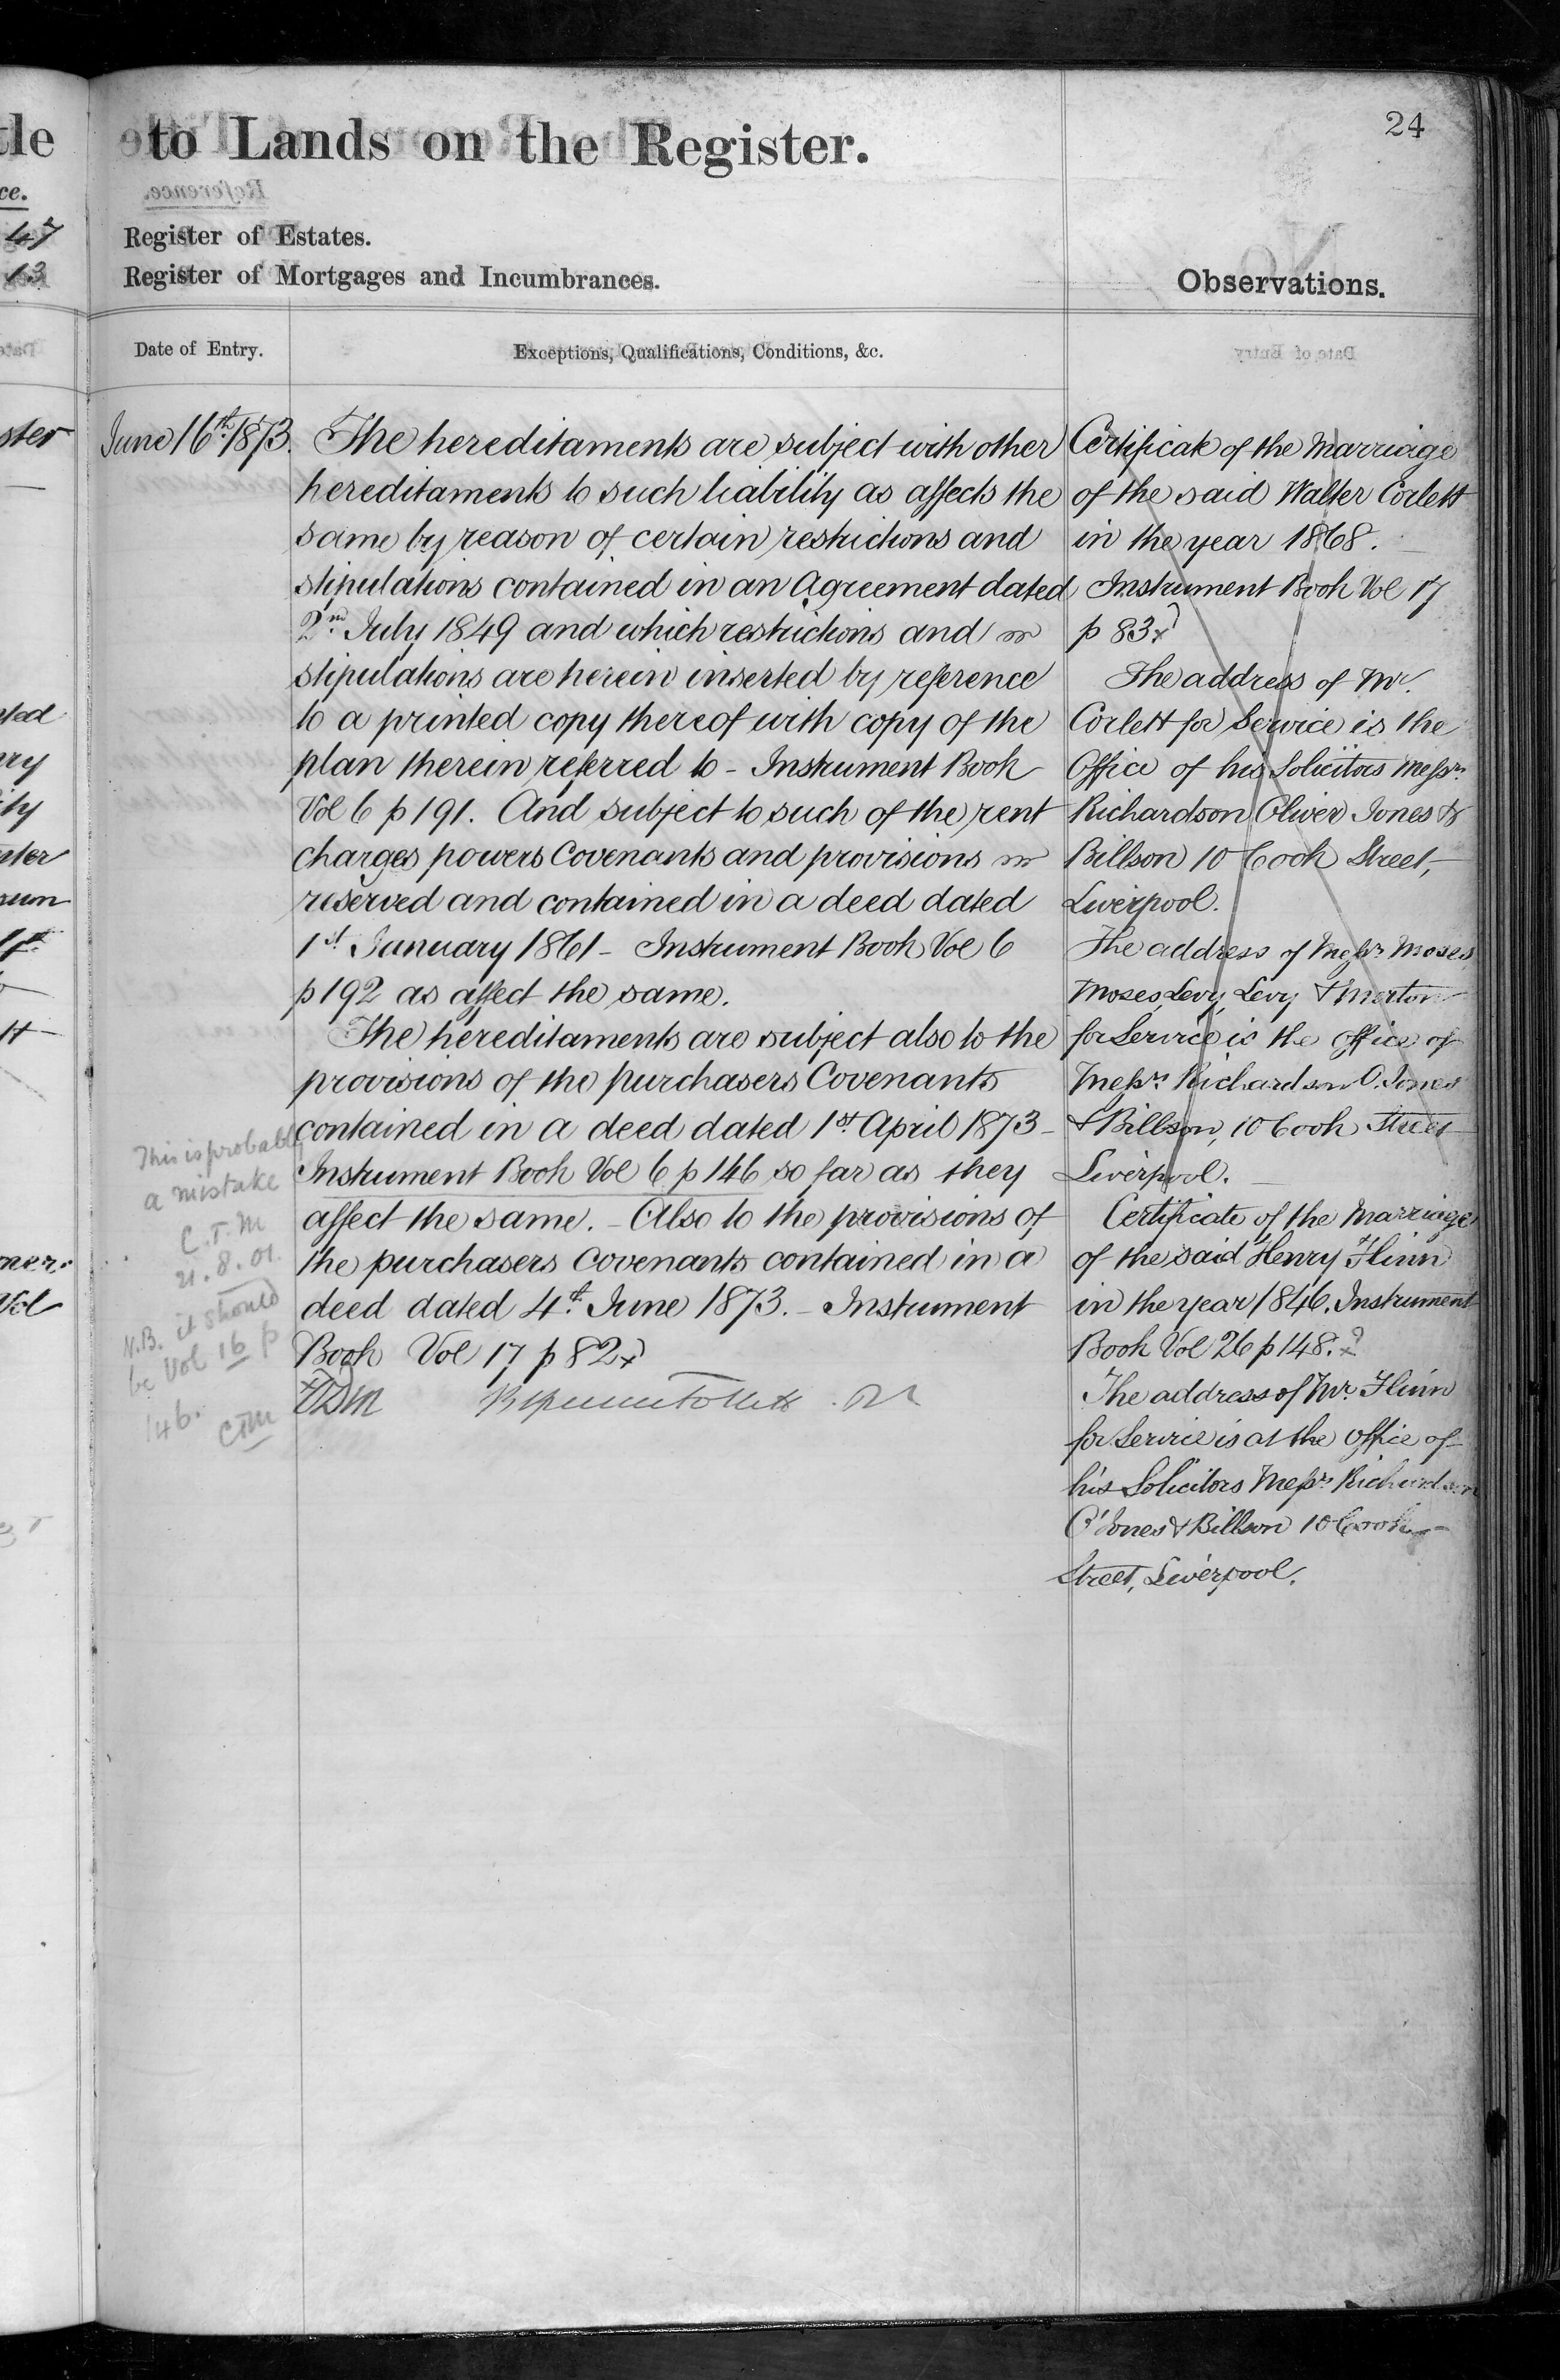 24
to Lands on the Register.
Register of Estates.
Register of Mortgages and Incumbrances.
Observations.
Date of Entry.
Exceptions, Qualifications, Conditions, &c.
June 16th 1873.
The hereditaments are subject with other
hereditaments to such liability as affects the
same by reason of certain restrictions and
stipulations contained in an Agreement dated
2nd July 1849 and which restrictions and
stipulations are herein inserted by reference
to a printed copy thereof with copy of the
plan therein referred to - Instrument Book
Vol 6 p 191. And subject to such of the rent
charges powers Covenants and provisions
reserved and contained in a deed dated
1st January 1861 - Instrument Book Vol 6
p 192 as affect the same.
The hereditaments are subject also to the
provisions of the purchasers Covenants
contained in a deed dated 1st April 1873 -
Instrument Book Vol 6 p 146 so far as they
affect the same. - Also to the provisions of
the purchasers Covenants contained in a
deed dated 4th June 1873. - Instrument
Book Vol 17 p 82
This is probably
a mistake
C.T.M
21.8.01.
N.B. it should
be Vol 16 p
146.
CTM
Certificate of the Marriage
of the said Walter Corlett
in the year 1868.
Instrument Book Vol 17
p 83
The address of Mr.
Corlett for Service is the
Office of his Solicitors Messrs
Richardson Oliver Jones &
Billson 10 Cook Street,
Liverpool.
The address of Messrs Moses,
Moses, Levy, Levy & Merton
for Service is the office of
Messrs Richardson O. Jones
& Billson, 10 Cook Street
Liverpool.
Certificate of the Marriage
of the said Henry Flinn
in the year 1846. Instrument
Book Vol 26 p 148.
The address of Mr. Flinn
for Service is at the office of
his Solicitors Messrs Richardson
O. Jones & Billson 10 Cook
Street, Liverpool.